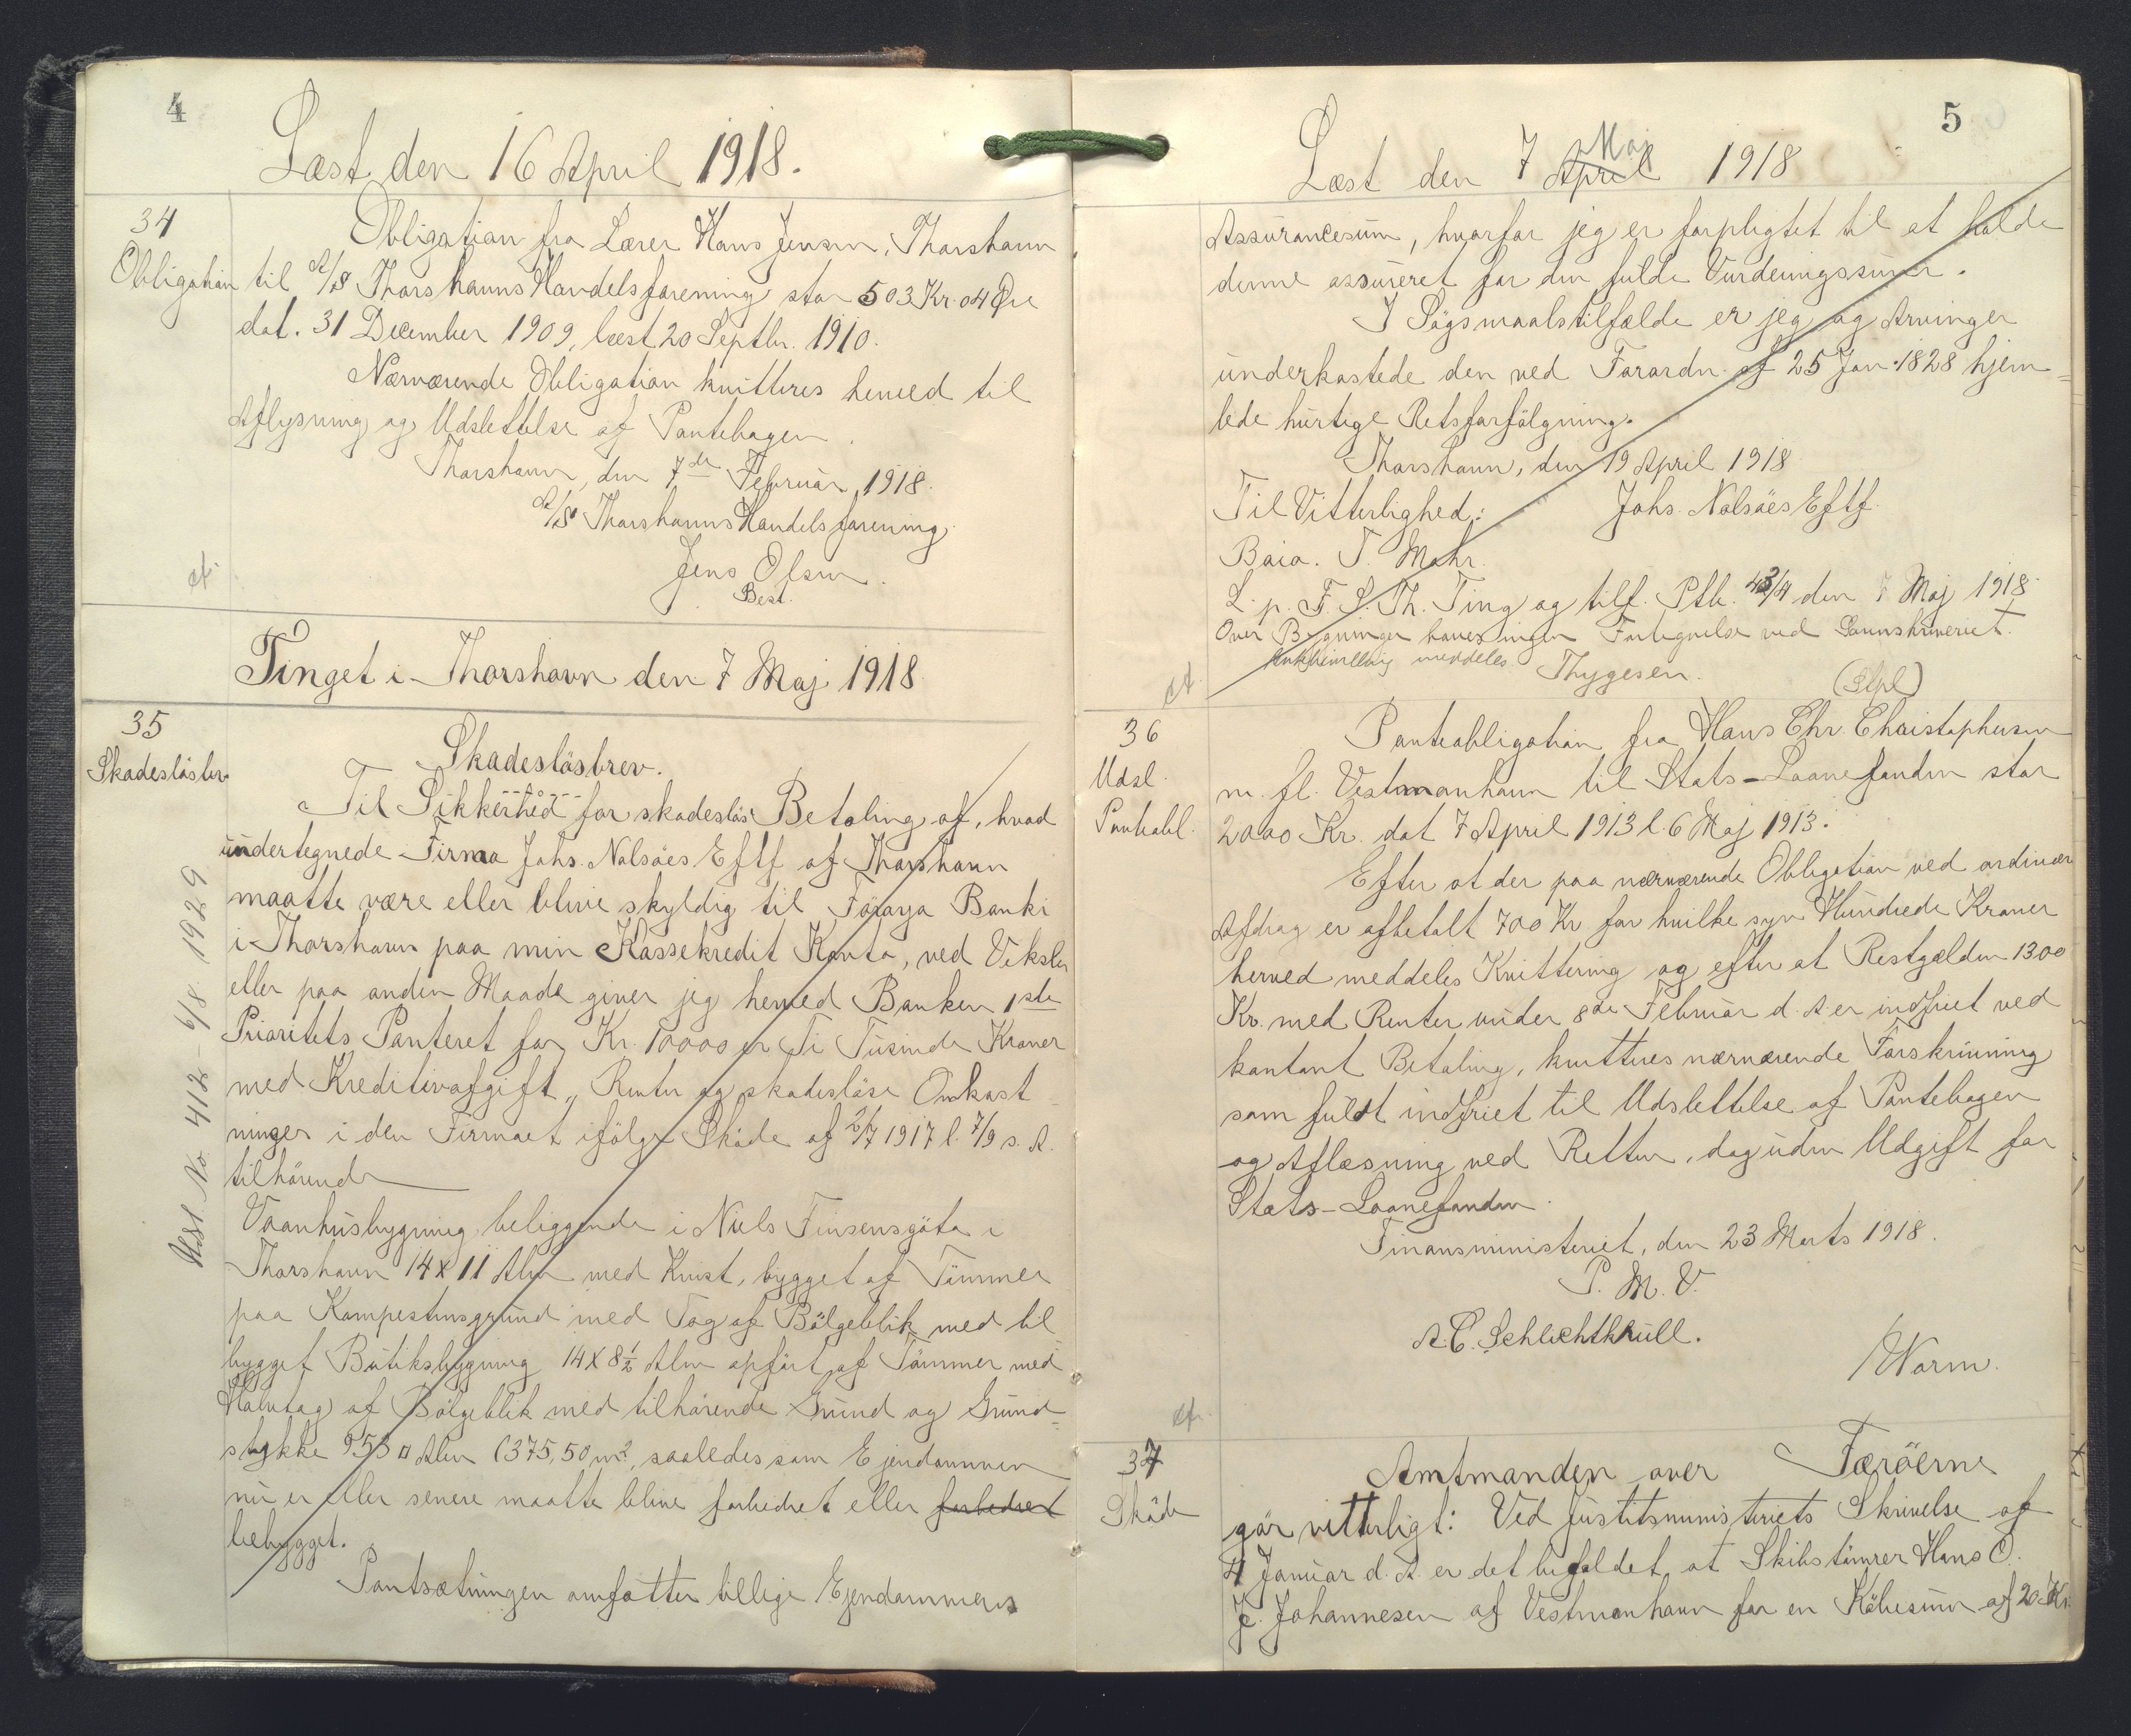 4
Læst den 16 April 1918.
34
Obligation
Obligation fra Lærer Hans Jensen, Thorshavn
til A/S Thorshavns Handelsforening stor 503 Kr. 04 Øre
dat. 31 December 1909, læst 20 Septbr. 1910.
Nærværende Obligation kvitteres herved til
Aflysning og Udslettelse af Pantebogen.
Thorshavn, den 7de Februar 1918.
A/S Thorshavns Handelsforening
Jens Olsen.
Best.
Tinget i Thorshavn den 7 Maj 1918
35
Skadesløsbr.
Skadesløsbrev.
Til Sikkerhed for skadesløs Betaling af, hvad
undertegnede Firma Johs. Nolsöes Eftf af Thorshavn
maatte være eller blive skyldig til Föroya Banki
i Thorshavn paa min Kassekredit Konto, ved Veksler
eller paa anden Maade giver jeg herved Banken 1ste
Prioritets Panteret for Kr. 10000 er Ti Tusinde Kroner
med Kreditivafgift, Renter og skadesløse Omkost
ninger i den Firmaet ifølge Skøde af 2/7 1917 l. 7/9 s. A.
tilhørende
Vaanhusbygning beliggende i Niels Finsensgöta i
Thorshavn 14 x 11 Alen med Kvist, bygget af Tömmer
paa Kampestensgrund med Tag af Bölgeblik med til
bygget Butiksbygning 14 x 8½ Alen opført af Tömmer med
Halvtag af Bölgeblik med tilhørende Grund og Grund=
stykke 953 □ Alen (375,50 m², saaledes som Ejendommen
nu er eller senere maatte blive forbedret eller forbedret
bebygget.
Pantsætningen omfatter tillige Ejendommens
Udsl. No 412 - 6/8 1929
5
Læst den 7 April Maj 1918
Assurancesum, hvorfor jeg er forpligtet til at holde
denne assureret for den fulde Vurderingssum.
I Søgsmaalstilfælde er jeg og Arvinger
underkastede den ved Forordn. af 25 Jan. 1828 hjem=
lede hurtige Retsforfølgning.
Thorshavn, den 19 April 1918
Til Vitterlighed: Johs. Nolsöes Eftf.
Baia. T. Mohr.
L. p. F. S. Th. Ting og tilf. Ptb. 43/4 den 7 Maj 1918
Over Bygninger haves ingen Fortegnelse ved Sorenskriveriet.
meddeles. Thygesen.
(Stpl)
36
Udsl.
Panteobl.
Panteobligation fra Hans Chr. Christophersen
m. fl. Vestmanhavn til Stats-Laanefonden stor
2000 Kr. dat 7 April 1913 l. 6 Maj 1913.
Efter at der paa nærværende Obligation ved ordinær
Afdrag er afbetalt 700 Kr for hvilke syv Hundrede Kroner
herved meddeles Kvittering og efter at Restgælden 1300
Kr. med Renter under 8de Februar d. A er indfriet ved
kontant Betaling, kvitteres nærværende Forskrivning
som fuldt indfriet til Udslettelse af Pantebogen
og Aflæsning ved Retten, dog uden Udgift for
Stats-Laanefonden.
Finansministeriet, den 23 Marts 1918.
P. M. V.
A. C. Schlichtkrull.
/Worm.
37
Skøde
Amtmanden over Færöerne
gör vitterligt: Ved Justitsministeriets Skrivelse af
4 Januar d. A. er det bifaldet, at Skibstömrer Hans C.
J. Johannesen af Vestmanhavn for en Købesum af 20 Kr.